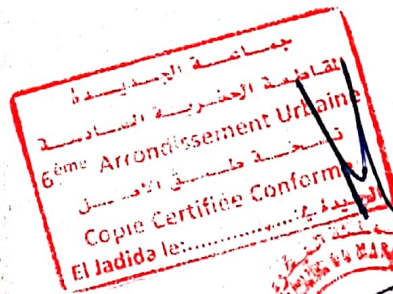 جماعة الجديدة
المقاطعة الحضرية السادسة
6ème Arrondissement Urbaine
نسخة طبق الأصل
Copie Certifiée Conforme
الجديدة في
El Jadida le:....................